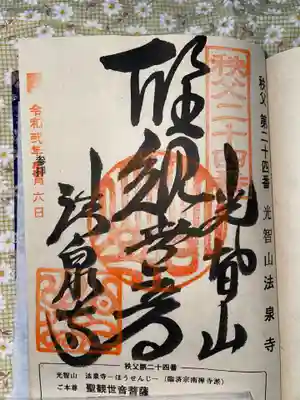 秩父 第二十四番 光智山 法泉寺
秩父二十四番
光智山
聖観世音
法泉寺
奉拝
令和弐年 月六日
秩父第二十四番
光智山 法泉寺-ほうせんじ-(臨済宗南禅寺派)
ご本尊 聖観世音菩薩